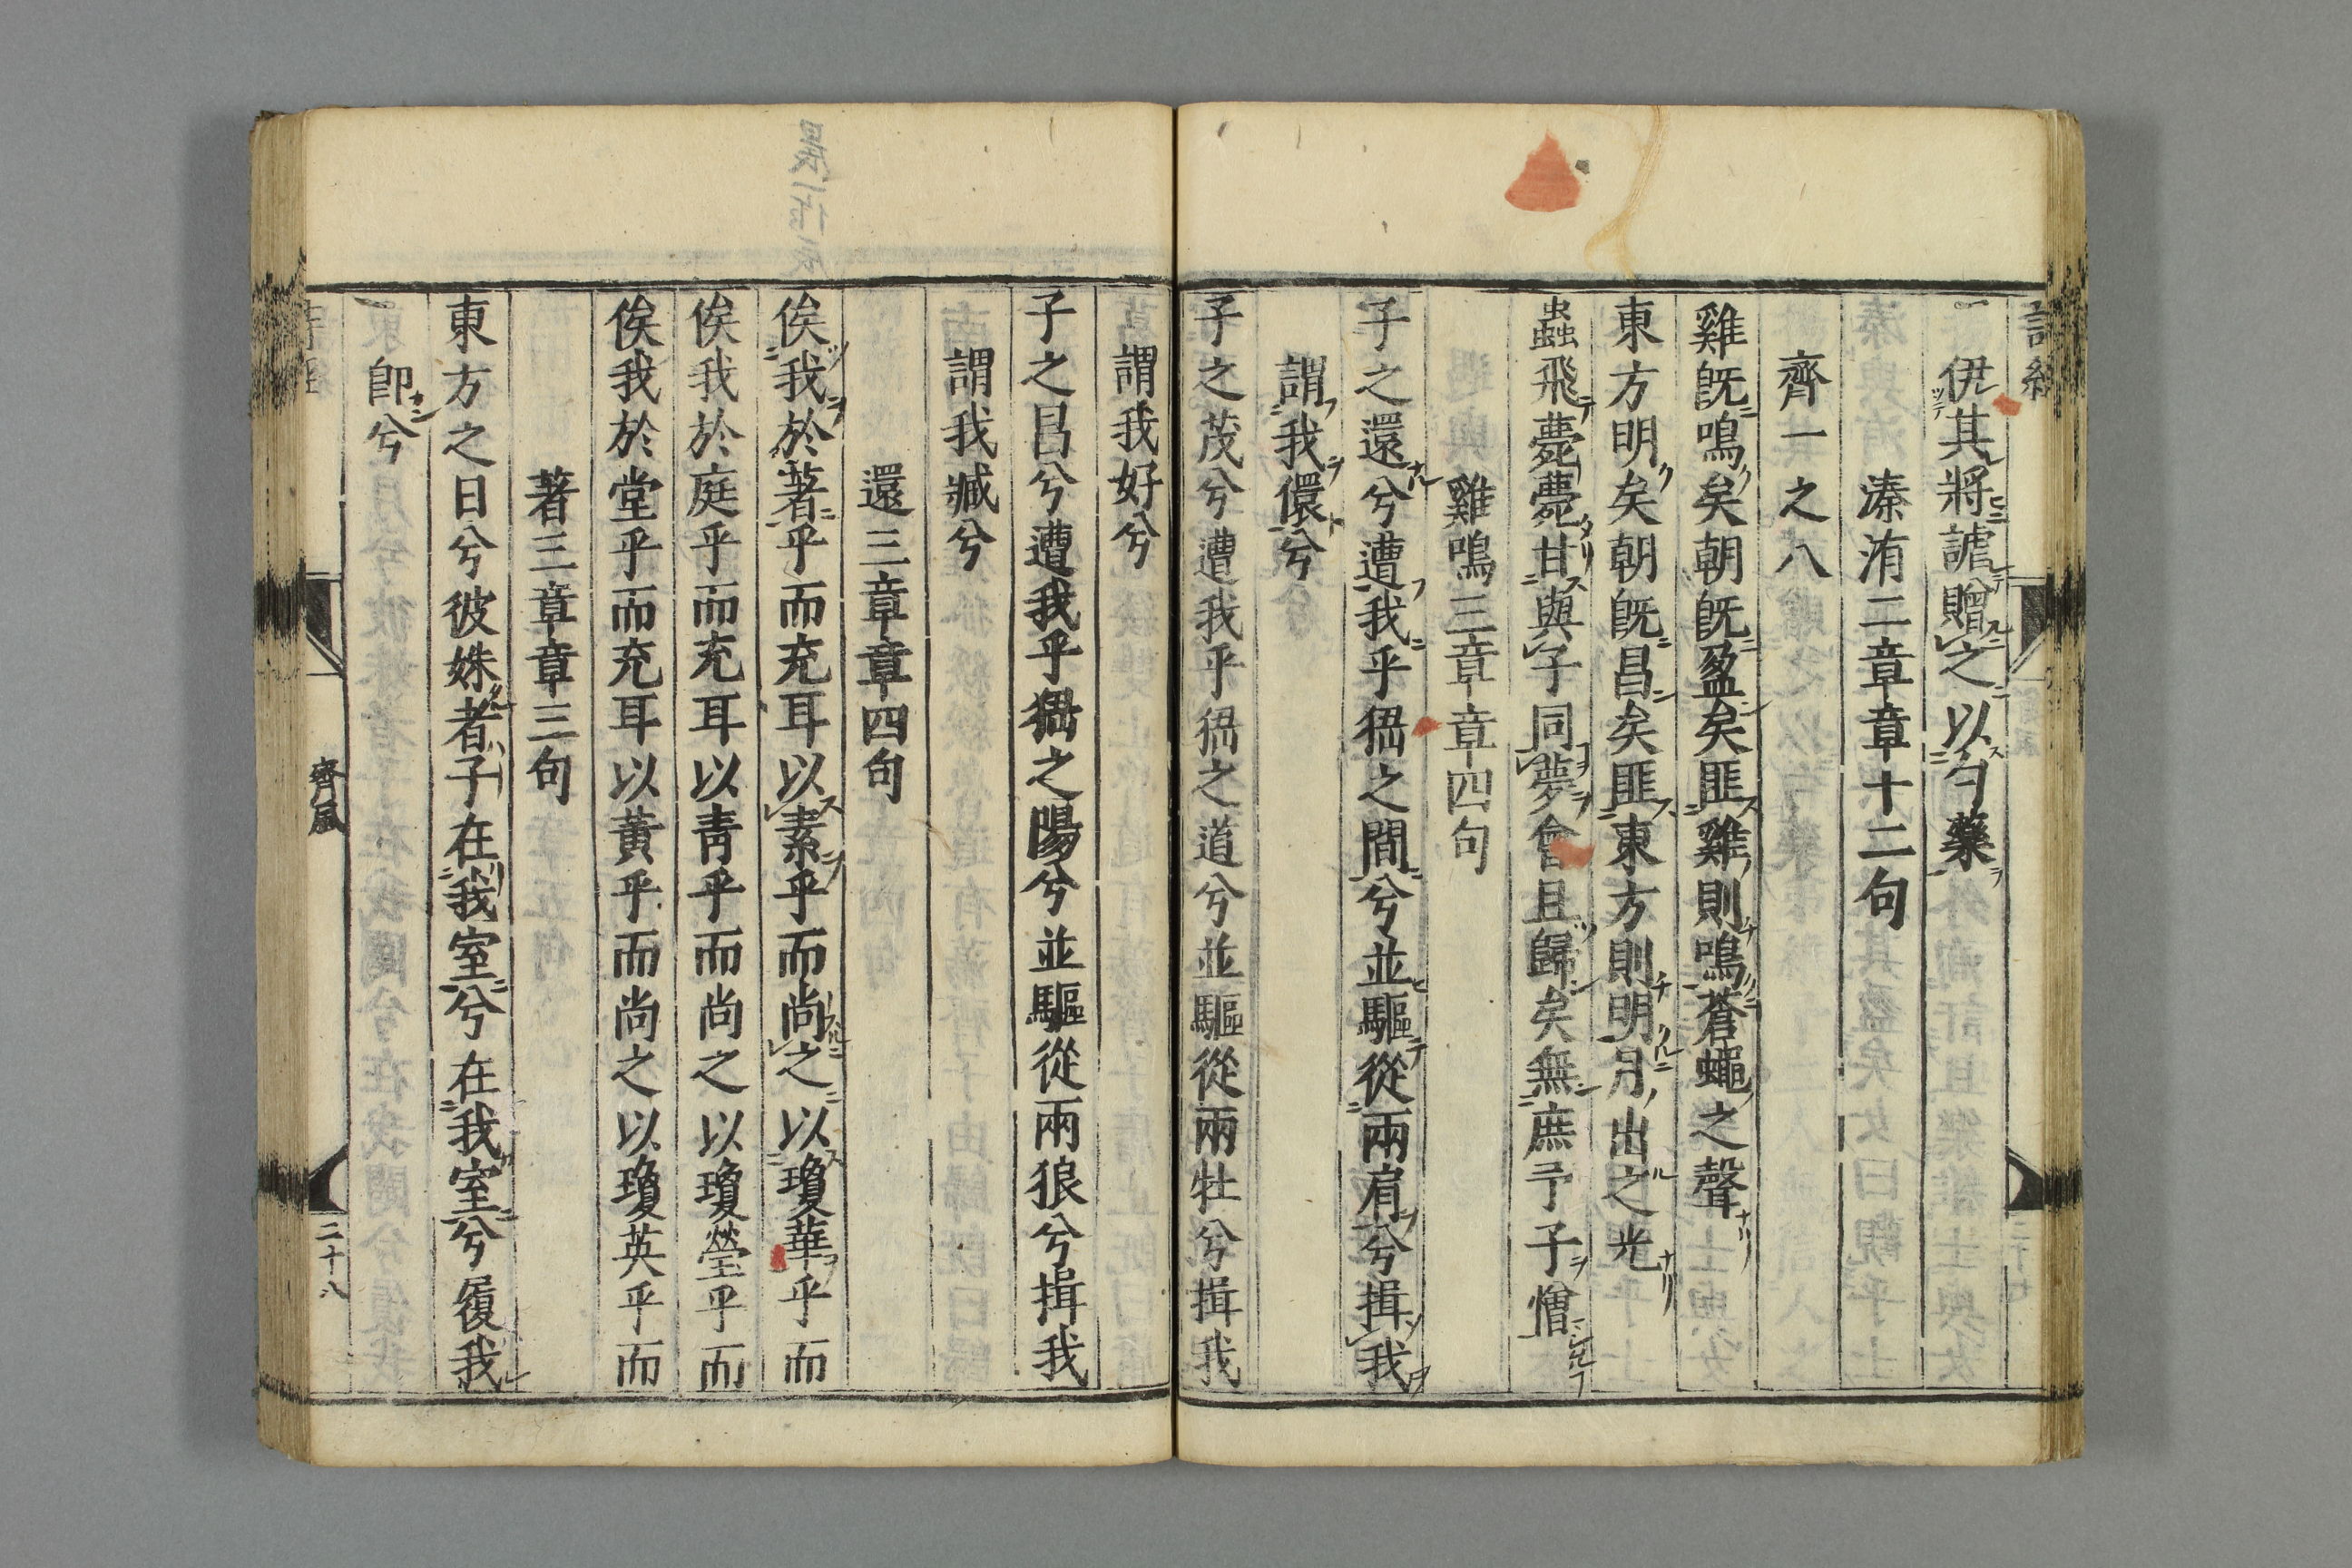 伊其將謔贈之以勺藥
溱洧二章章十二句
齊一之八
雞旣鳴矣朝旣盈矣匪雞則鳴蒼蠅之聲
東方明矣朝旣昌矣匪東方則明月出之光
蟲飛薨薨甘與子同夢會且歸矣無庶予子憎
雞鳴三章章四句
子之還兮遭我乎峱之間兮並驅從兩肩兮揖我
謂我儇兮
子之茂兮遭我乎峱之道兮並驅從兩牡兮揖我
謂我好兮
子之昌兮遭我乎峱之陽兮並驅從兩狼兮揖我
謂我臧兮
還三章章四句
俟我於著乎而充耳以素乎而尚之以瓊華乎而
俟我於庭乎而充耳以靑乎而尚之以瓊瑩乎而
俟我於堂乎而充耳以黃乎而尚之以瓊英乎而
著三章章三句
東方之日兮彼姝者子在我室兮在我室兮履我
卽兮
齊風
二十八